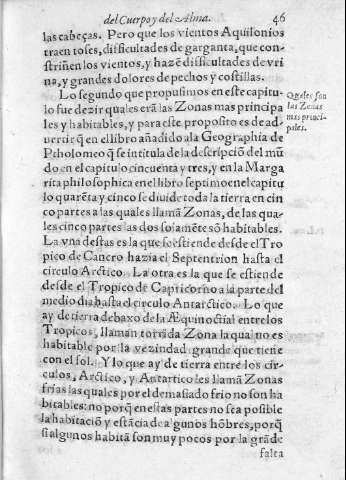 del Cuerpo y del Alma. 46
las cabeças. Pero que los vientos Aquilonios
traen toses, difficultades de garganta, que con-
striñen los vientos, y hazẽ difficultades de vri
na, y grandes dolores de pechos y costillas.
Lo segundo que propusimos en este capitu-
lo fue dezir quales erã las Zonas mas principa
les y habitables, y para este proposito es de ad
uertir q̃ en el libro añadido ala Geographia de
Ptholomeo q̃ se intitula de la descripciõ del mũ
do en el capitulo cincuenta y tres, y en la Marga
rita philosophica en el libro septimo enel capitu
lo quarẽta y cinco se diuide toda la tierra en cin
co partes a las quales llamã Zonas, de las qua-
les cinco partes las dos solamẽte sõ habitables.
La vna destas es la que se estiende desde el Tro
pico de Cancro hazia el Septentrion hasta el
circulo Arctico. La otra es la que se estiende
desde el Tropico de Capricorno a la parte del
medio dia hasta el circulo Antarctico. Lo que
ay de tierra debaxo de la Æquinoctial entre los
Tropicos, llaman torrida Zona la qual no es
habitable por la vezindad grande que tiene
con el sol. Y lo que ay de tierra entre los cir-
culos, Arctico, y Antartico les llamã Zonas
frias las quales por el demasiado frio no son ha
bitables: no porq̃ en estas partes no sea posible
la habitaciõ y estãcia de algunos hõbres, porq̃
si algunos habitã son muy pocos por la grãde
falta
Quales son
las Zonas
mas princi-
pales.